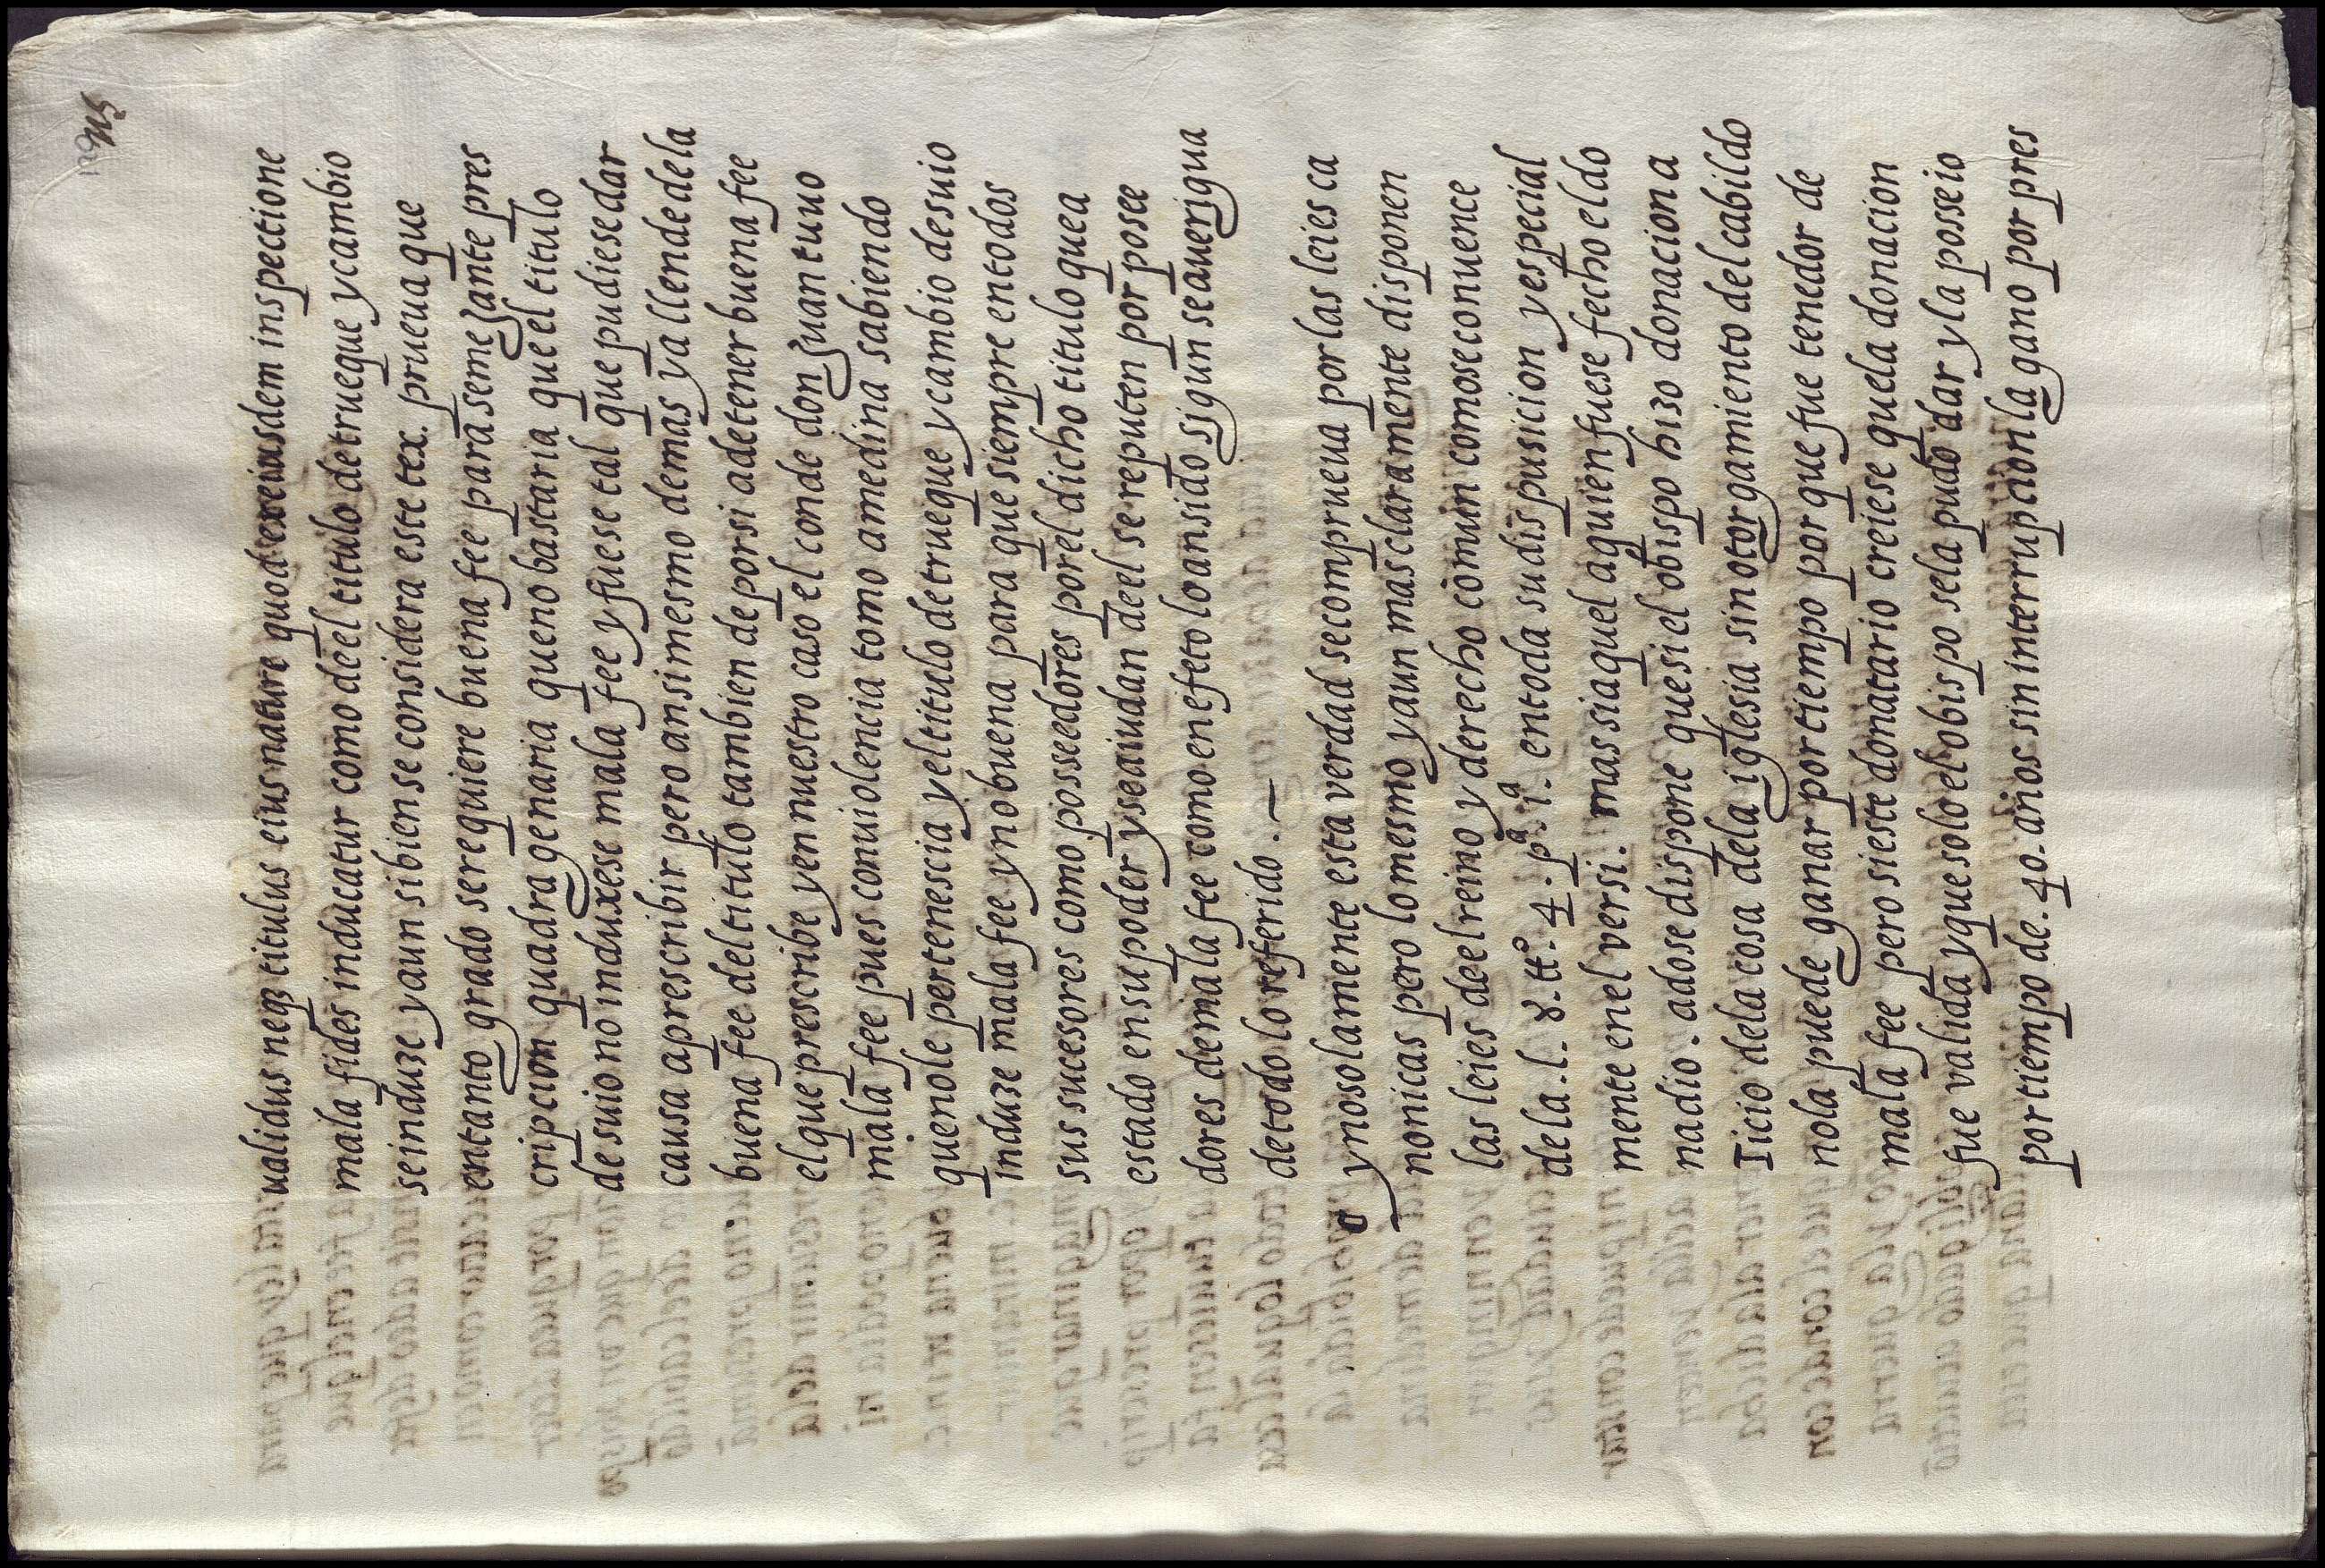 ualidus neqз titulus eius nature quod ex eiusdem inspectione
mala fides inducatur como de el titulo de trueque y cambio
se induze y aun si bien se considera este tex. prueua que
entanto grado se requiere buena fee para semejante pres
cripcion quadragenaria que no bastaria que el titulo
de suio no induxese mala fee y fuese tal que pudiese dar
causa a prescribir pero ansi mesmo demas y allende de la
buena fee del titulo tambien de por si a de tener buena fee
el que prescribe y en nuestro caso el conde don juan tuuo
mala fee pues con uiolencia tomo a medina sabiendo
que no le pertenescia y el titulo de trueque y cambio de suio
induze mala fee y no buena para que siempre en todos
sus sucesores como posseedores por el dicho titulo que a
estado en su poder y se aiudan de el se reputen por posee
dores de mala fee como en efeto lo an sido sigun se auerigua
de todo lo referido. —
y no solamente esta verdad se comprueua por las leies ca
nonicas pero lo mesmo y aun mas claramente disponen
las leies de el reino y derecho comun como se conuence
de la. l. 8. tt.º 4. p.ª 1.ª en toda su dispusicion y especial
mente en el versi. mas si aquel a quien fuese fecho el do
nadio. a do se dispone que si el obispo hizo donacion a
Ticio de la cosa de la iglesia sin otorgamiento del cabildo
no la puede ganar por tiempo por que fue tenedor de
mala fee pero si este donatario creiese que la donacion
fue valida y que solo el obispo se la pudo dar y la posseio
por tiempo de. 40. años sin interrupcion la gano por pres